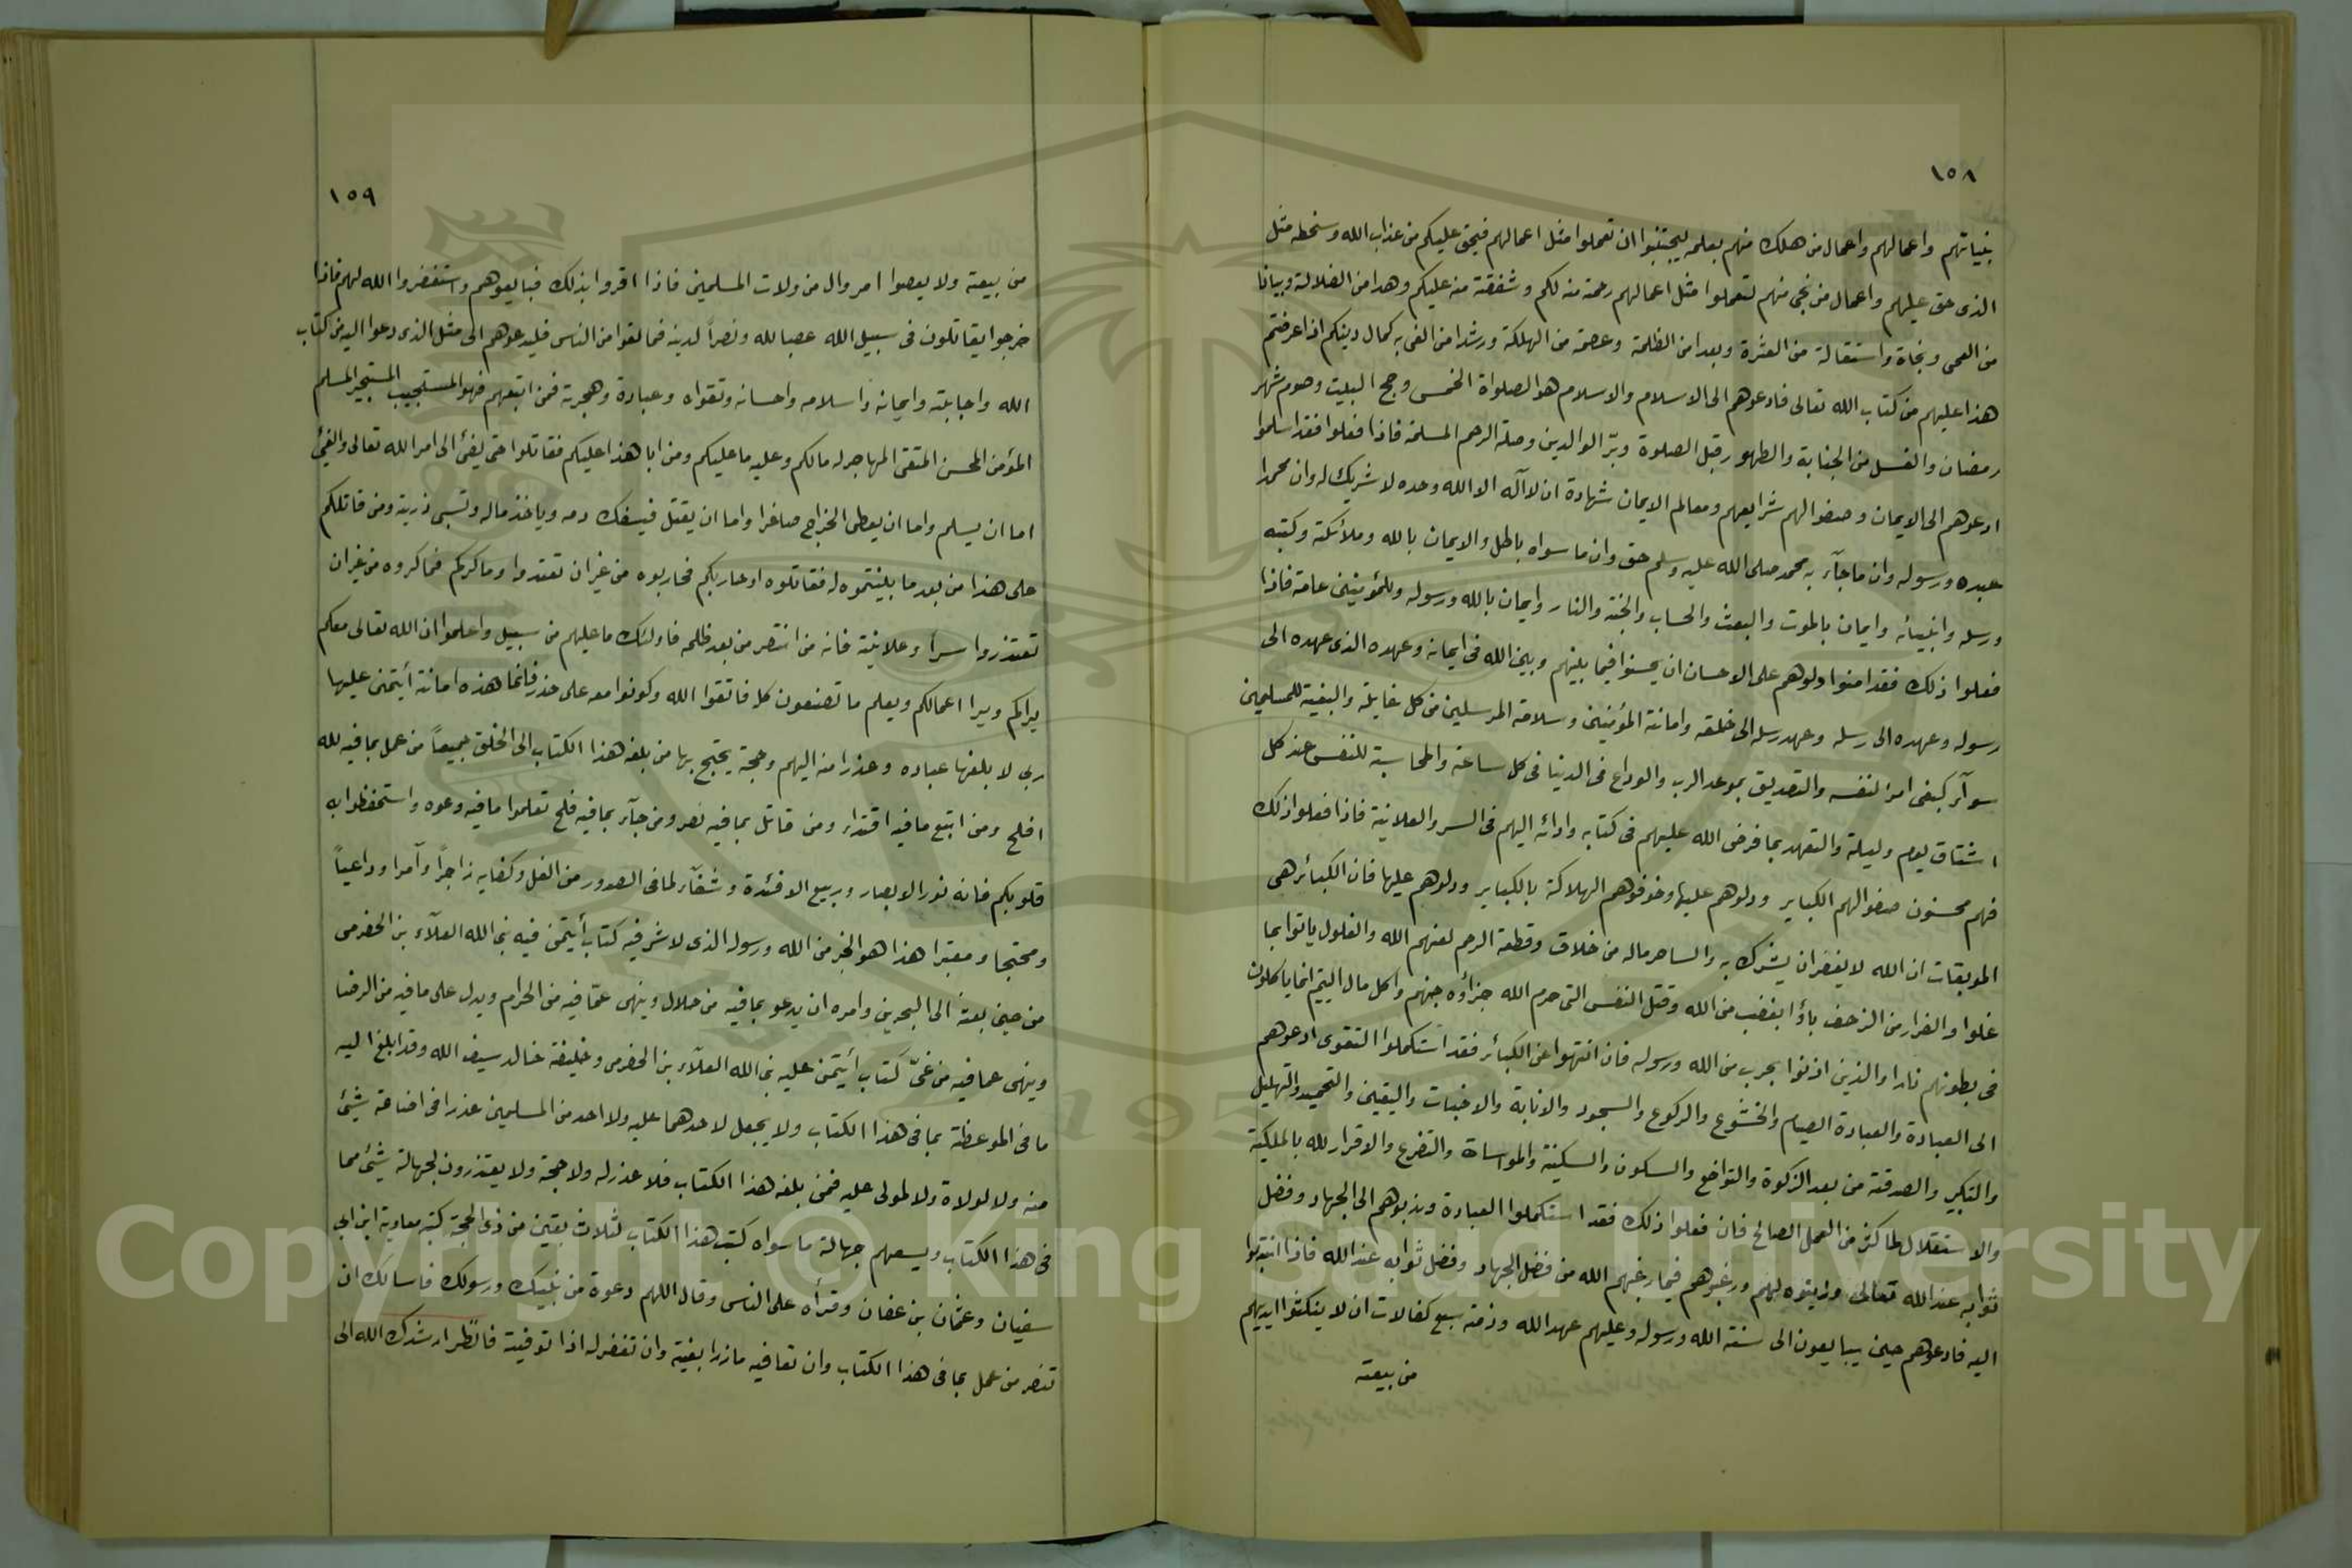 ١٥٨
بنياتهم واعمالهم واعمال من هلك منهم بعلمه ليجتنبوا ان تعملوا مثل اعمالهم فيحق عليكم من عذاب الله وسخطه مثل
الذى حق عليهم واعمال من نجى منهم لتعملوا مثل اعمالهم رحمة منه لكم وشفقة منه عليكم وهدا من الضلالة وبيانا
من العمى ونجاة واستقالة من العثرة وبعدا من الظلمة وعصمة من الهلكة ورشدا من الغى به كمال دينكم اذا عرضتم
هذا عليهم من كتاب الله تعالى فادعوهم الى الاسلام والاسلام هو الصلواة الخمس وحج البيت وصوم شهر
رمضان والغسل من الجنابة والطهور قبل الصلوة وبرّ الوالدين وصلة الرحم المسلمة فاذا فعلوا فقد اسلموا
ادعوهم الى الايمان وصفوا لهم شرايعهم ومعالم الايمان شهادة ان لا آله الا الله وحده لا شريك له وان محمدا
عبده ورسوله وان ما جآء به محمد صلى الله عليه وسلم حق وان ما سواه باطل والايمان بالله وملائكته وكتبه
ورسله وانبيائه وايمان بالموت والبعث والحساب والجنة والنار وايمان بالله ورسوله وللمؤمنين عامة فاذا
فعلوا ذلك فقد امنوا ودلوهم على الاحسان ان يحسنوا فيما بينهم وبين الله فى ايمانه وعهده الذى عهده الى
رسوله وعهده الى رسله وعهد رسله الى خلقه وامانة المؤمنين وسلامة المرسلين من كل غايلة والبغية للمسلمين
سوآء كبغى امرء لنفسه والتصديق بموعد الرب والوداع فى الدنيا فى كل ساعة والمحاسبة للنفس عند كل
اشتاق يوم وليلة والتعهد بما فرض الله عليهم فى كتابه وادائه اليهم فى السر والعلانية فاذا فعلوا ذلك
فهم محسنون صفوا لهم الكباير ودلوهم عليها وخوفوهم الهلاكة بالكباير ودلوهم عليها فان الكبائر هى
الموبقات ان الله لا يغفر ان يشرك به والساحر ماله من خلاق وقطعة الرحم لعنهم الله والغلول ياتوا بما
غلوا والفرار من الزحف باؤا بغضب من الله وقتل النفس التى حرم الله جزأوه جهنم واكل مال اليتيم انما ياكلون
فى بطونهم نارا والذين اذنوا بحرب من الله ورسوله فان انتهوا عن الكبائر فقد استكملوا التقوى ادعوهم
الى العبادة والعبادة الصيام والخشوع والركوع والسجود والانابة والاخبات واليقين والتحميد والتهليل
والتكبير والصدقة من بعد الزكوة والتواضع والسكون والسكينة والمواساة والتضرع والاقرار لله بالملكية
والاستقلال لما كثر من العمل الصالح فان فعلوا ذلك فقد استكملوا العبادة وندبوهم الى الجهاد وفضل
ثوابه عند الله تعالى وزيتوه لهم ورغبوهم فيما رغبهم الله من فضل الجهاد وفضل ثوابه عند الله فاذا انتدبوا
اليه فادعوهم حين يبايعون الى سنة الله ورسوله وعليهم عهد الله وذمة سبع كفالات ان لا ينكثوا ايديهم
من بيعة
١٥٩
من بيعة ولا يعصوا امر وال من ولات المسلمين فاذا اقروا بذلك فبايعوهم واستغفروا الله لهم فاذا
خرجوا يقاتلون فى سبيل الله عصبا لله ونصراً لدينه فما لقوا من الناس فليدعوهم الى مثل الذى دعوا اليه من كتاب
الله واجابته وايمانه واسلامه واحسانه وتقواه وعبادة وهجرته فمن اتبعهم فهو المستجيب المستجير المسلم
المؤمن المحسن المتقى المهاجر له مالكم وعليه ما عليكم ومن ابا هذا عليكم فقاتلوا حتى يفئ الى امر الله تعالى والفئ
اما ان يسلم واما ان يعطى الخراج صاغرا واما ان يقتل فيسفك دمه وياخذ ماله وتسبى ذريته ومن قاتلكم
على هذا من بعد ما بينتموه له فقاتلوه او حاربكم فحاربوه من غير ان تعتدوا وماكركم فماكروه من غير ان
تعتذروا سراً وعلانية فانه من انتصر من بعد ظلمه فاولئك ما عليهم من سبيل واعلموا ان الله تعالى معكم
يراكم ويرا اعمالكم ويعلم ما تصنعون كله فاتقوا الله وكونوا معه على حذر فانما هذه امانة أيتمنى عليها
ربى لا بلغها عباده وعذرا منه اليهم وحجة يحتج بها من بلغه هذا الكتاب الى الخلق جميعاً من عمل بما فيه لله
افلح ومن اتبع ما فيه اقتداء ومن قاتل بما فيه نصر ومن جآء بما فيه فلح تعلموا ما فيه وعوه واستحفظوا به
قلوبكم فانه نور الابصار وربيع الافئدة وشفآء لما فى الصدور من الغل وكفا به زاجراً وآمرا وداعياً
ومحتجا ومعتبرا هذا هو الخير من الله ورسوله الذى لا شر فيه كتاب أيتمن فيه نبى الله العلآء بن الحضرمى
من حين بعثه الى البحرين وامره ان يدعو بما فيه من حلال وينهى عمّا فيه من الحرام ويدل على ما فيه من الرضا
وينهى عما فيه من غىّ كتاب أيتمن عليه نبى الله العلآء بن الحضرمى وخليفة خالد سيف الله وقد ابلغ اليه
ما فى الموعظة بما فى هذا الكتاب ولا يجعل لاحدهما عليه ولا احد من المسلمين عذرا فى اضاعة شيئ
منه ولا لولاة ولا لمولى عليه فمن بلغه هذا الكتاب فلا عذر له ولا حجة ولا يعتذرون لجهالة شيئ مما
فى هذا الكتاب ويسعهم جهالة ما سواه كتب هذا الكتاب لثلاث بقين من ذى الحجة كتبه معاوية ابن ابى
سفيان وعثمان بن عفان وقرأه على الناس وقال اللهم دعوة من نبيك ورسولك فاسالك ان
تنصر من عمل بما فى هذا الكتاب وان تعافيه ما زرا بغية وان تغفر له اذا توفيته فانظر ارشدك الله الى
Copyright © King Saud University